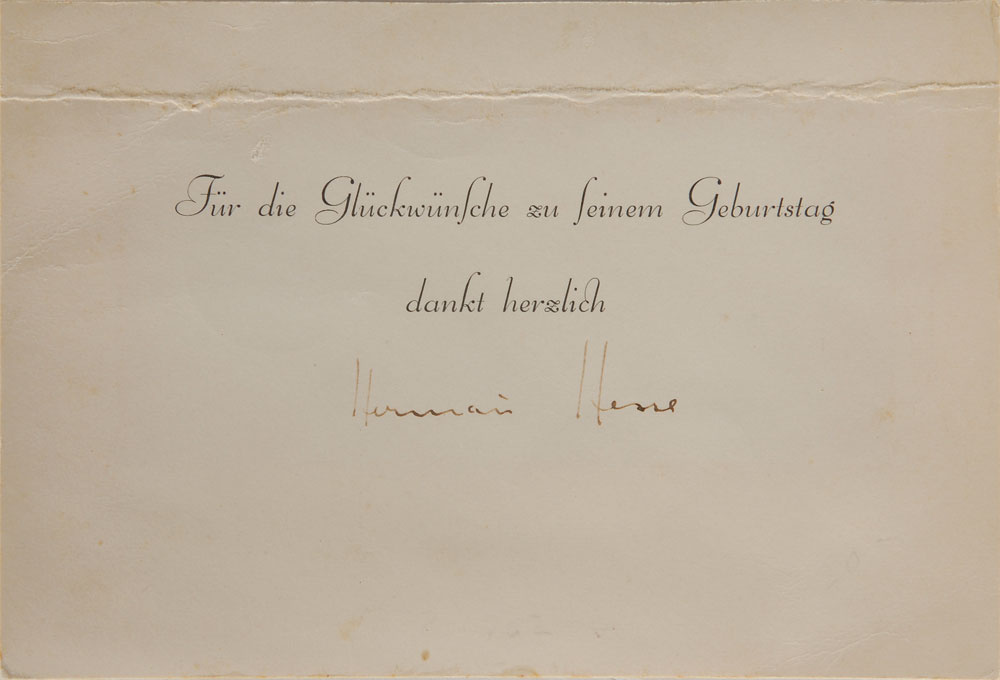 Für die Glückwünſche zu ſeinem Geburtstag
dankt herzlich
Hermann Hesse